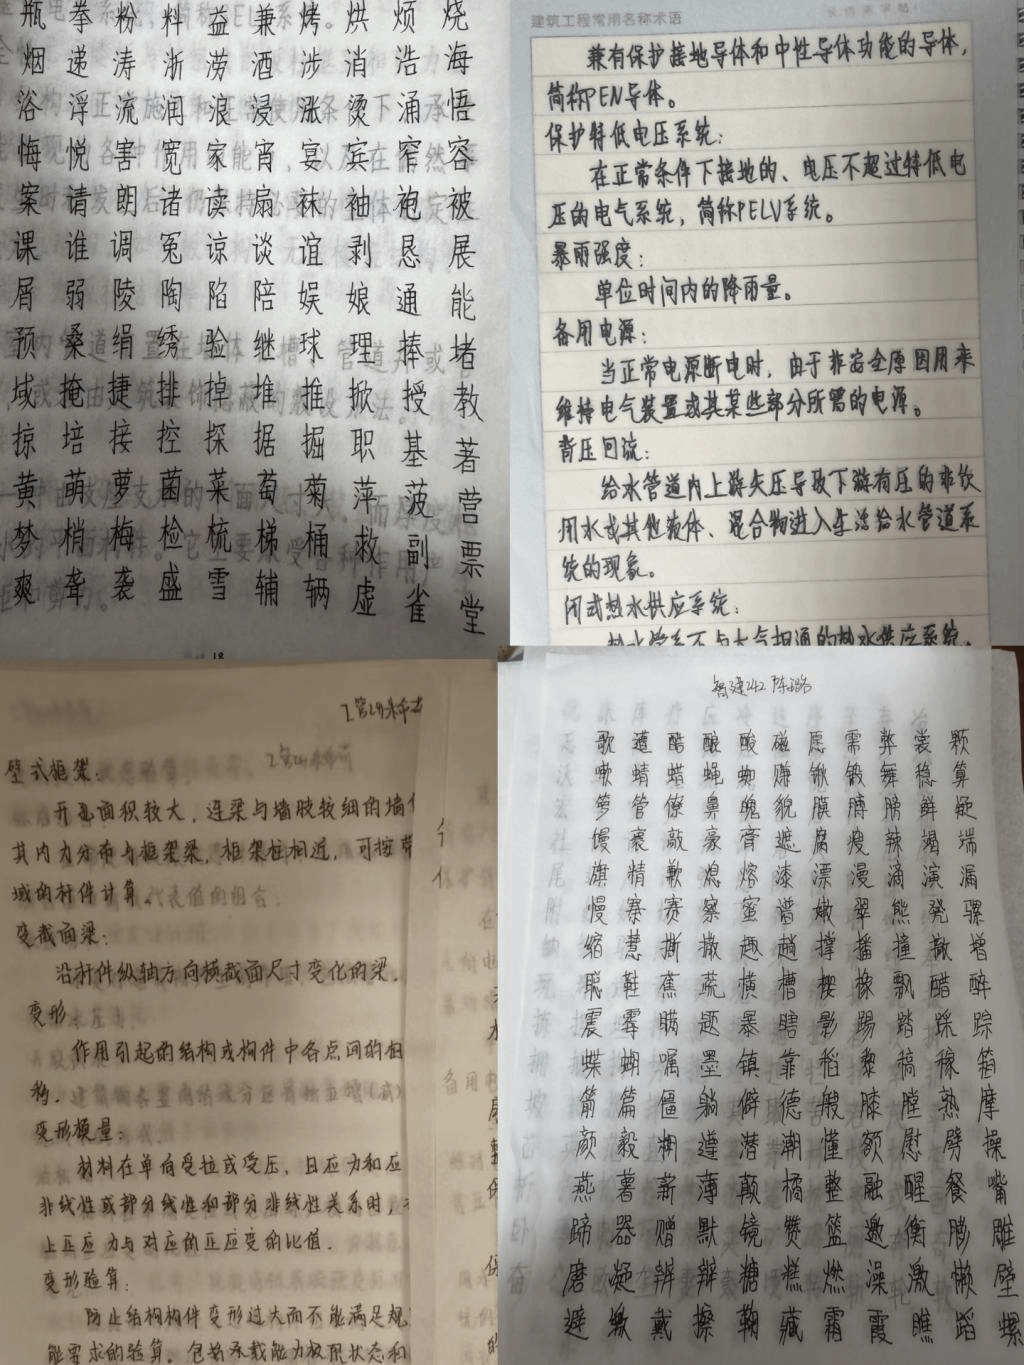 瓶拳粉料益兼烤烘烦烧
烟递涛浙涝酒涉消浩海
浴浮流润浪浸涨烫涌悟
悔悦害宽家宵宴宾窄容
案请朗诸读扇袜袖袍被
课谁调冤谅谈谊剥恳展
屑弱陵陶陷陪娱娘通能
预桑绢绣验继球理捧堵
域掩捷排掉堆推掀授教
掠培接控探据掘职基著
黄萌萝菌菜萄菊萍菠营
梦梢梅检梳梯桶救副票
爽聋袭盛雪辅辆虚雀堂
18
建筑工程常用名称术语
兼有保护接地导体和中性导体功能的导体，
简称PEN导体。
保护特低电压系统：
在正常条件下接地的、电压不超过特低电
压的电气系统，简称PELV系统。
暴雨强度：
单位时间内的降雨量。
备用电源：
当正常电源断电时，由于非安全原因用来
维持电气装置或其某些部分所需的电源。
背压回流：
给水管道内上游失压导致下游有压的非饮
用水或其他液体、混合物进入生活给水管道系
统的现象。
闭式热水供应系统：
热水管系不与大气相通的热水供应系统。
壁式框架：
开孔面积较大，连梁与墙肢较细的墙
其内力分布与框架梁，框架柱相近，可按带
域的杆件计算。
变截面梁：
沿杆件纵轴方向横截面尺寸变化的梁。
变形
作用引起的结构或构件中各点间的相
移．
变形模量：
材料在单向受拉或受压，且应力和应
非线性或部分线性和部分非线性关系时，
上正应力与对应的正应变的比值．
变形验算：
防止结构构件变形过大而不能满足规
能要求的验算。包括承载能力极限状态和
智建242
歌遭酷酿酸磁愿需弊裳颗
嗽蜻蜡蝇蜘赚锹锻舞稳算
箩管僚鼻魄貌膜膊膀鲜疑
馒裹敲豪膏遮腐瘦辣竭端
旗精歉熄熔漆漂漫滴演漏
慢寨赛察蜜谱嫩翠熊凳骡
缩慧撕撒趣趟撑播撞撤增
聪鞋蕉蔬横槽樱橡飘醋醉
震霉瞒题暴瞎影踢踏踩踪
蝶蝴嘱墨镇靠稻黎稿稼箱
箭篇僵躺僻德艘膝膛熟摩
颜毅糊遵潜潮懂额慰劈操
燕薯薪薄颠橘整融醒餐嘴
蹄器赠默镜赞篮邀衡膨雕
磨凝辨辩糖糕燃澡激懒壁
避缴戴擦鞠藏霜霞瞧蹈螺